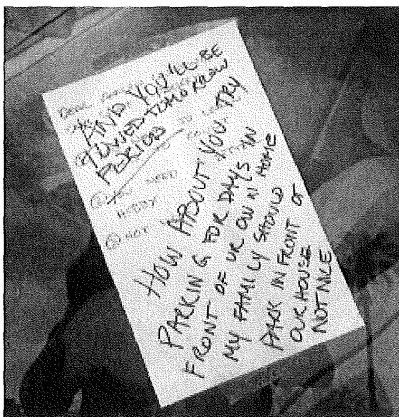 AND YOU'LL BE
TOWED TOMORROW
PERIOD
NEED
HOBBY
NOT
HOW ABOUT YOU TRY
PARKING FOR DAYS IN
FRONT OF UR OWN HOME
MY FAMILY SHOULD
PARK IN FRONT OF
OUR HOUSE
NOT NICE